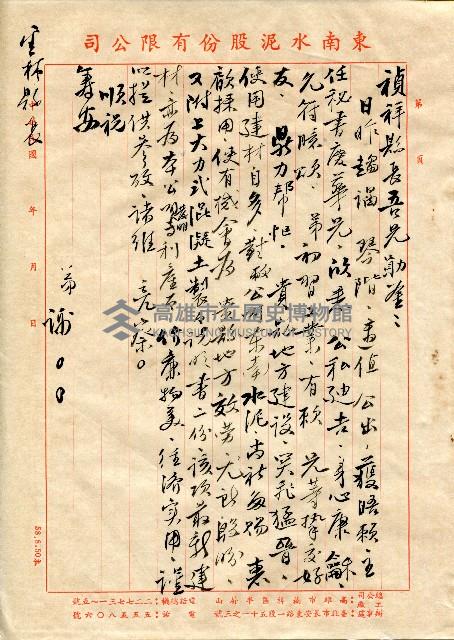 東南水泥股份有限公司
第 頁
禎祥縣長吾兄勛鉴：
日昨趨謁 琴階，適值 公出，獲晤賴主
任秘書慶華兄，欣悉 公私迪吉，身心康龢，
允符臆頌。弟初習工業，有賴 兄等摯友好
友，鼎力幫忙。貴縣地方建設，突飛猛晉，
使用建材自多，對敝公司東南水泥尚祈多賜 惠
顧採用，使有機會為 貴縣地方效勞，無新殷盼，
又附上大力式混凝土製說明書二份，該項最新建
材，亦為本公司專利產品，價廉物美，經濟實用，謹
以提供參考，諸維 亮察。
順祝
壽安
弟 謝○○
雲林縣長
中華民國 年 月 日
高雄市立歷史博物館
KAOHSIUNG MUSEUM OF HISTORY
58.6.50本